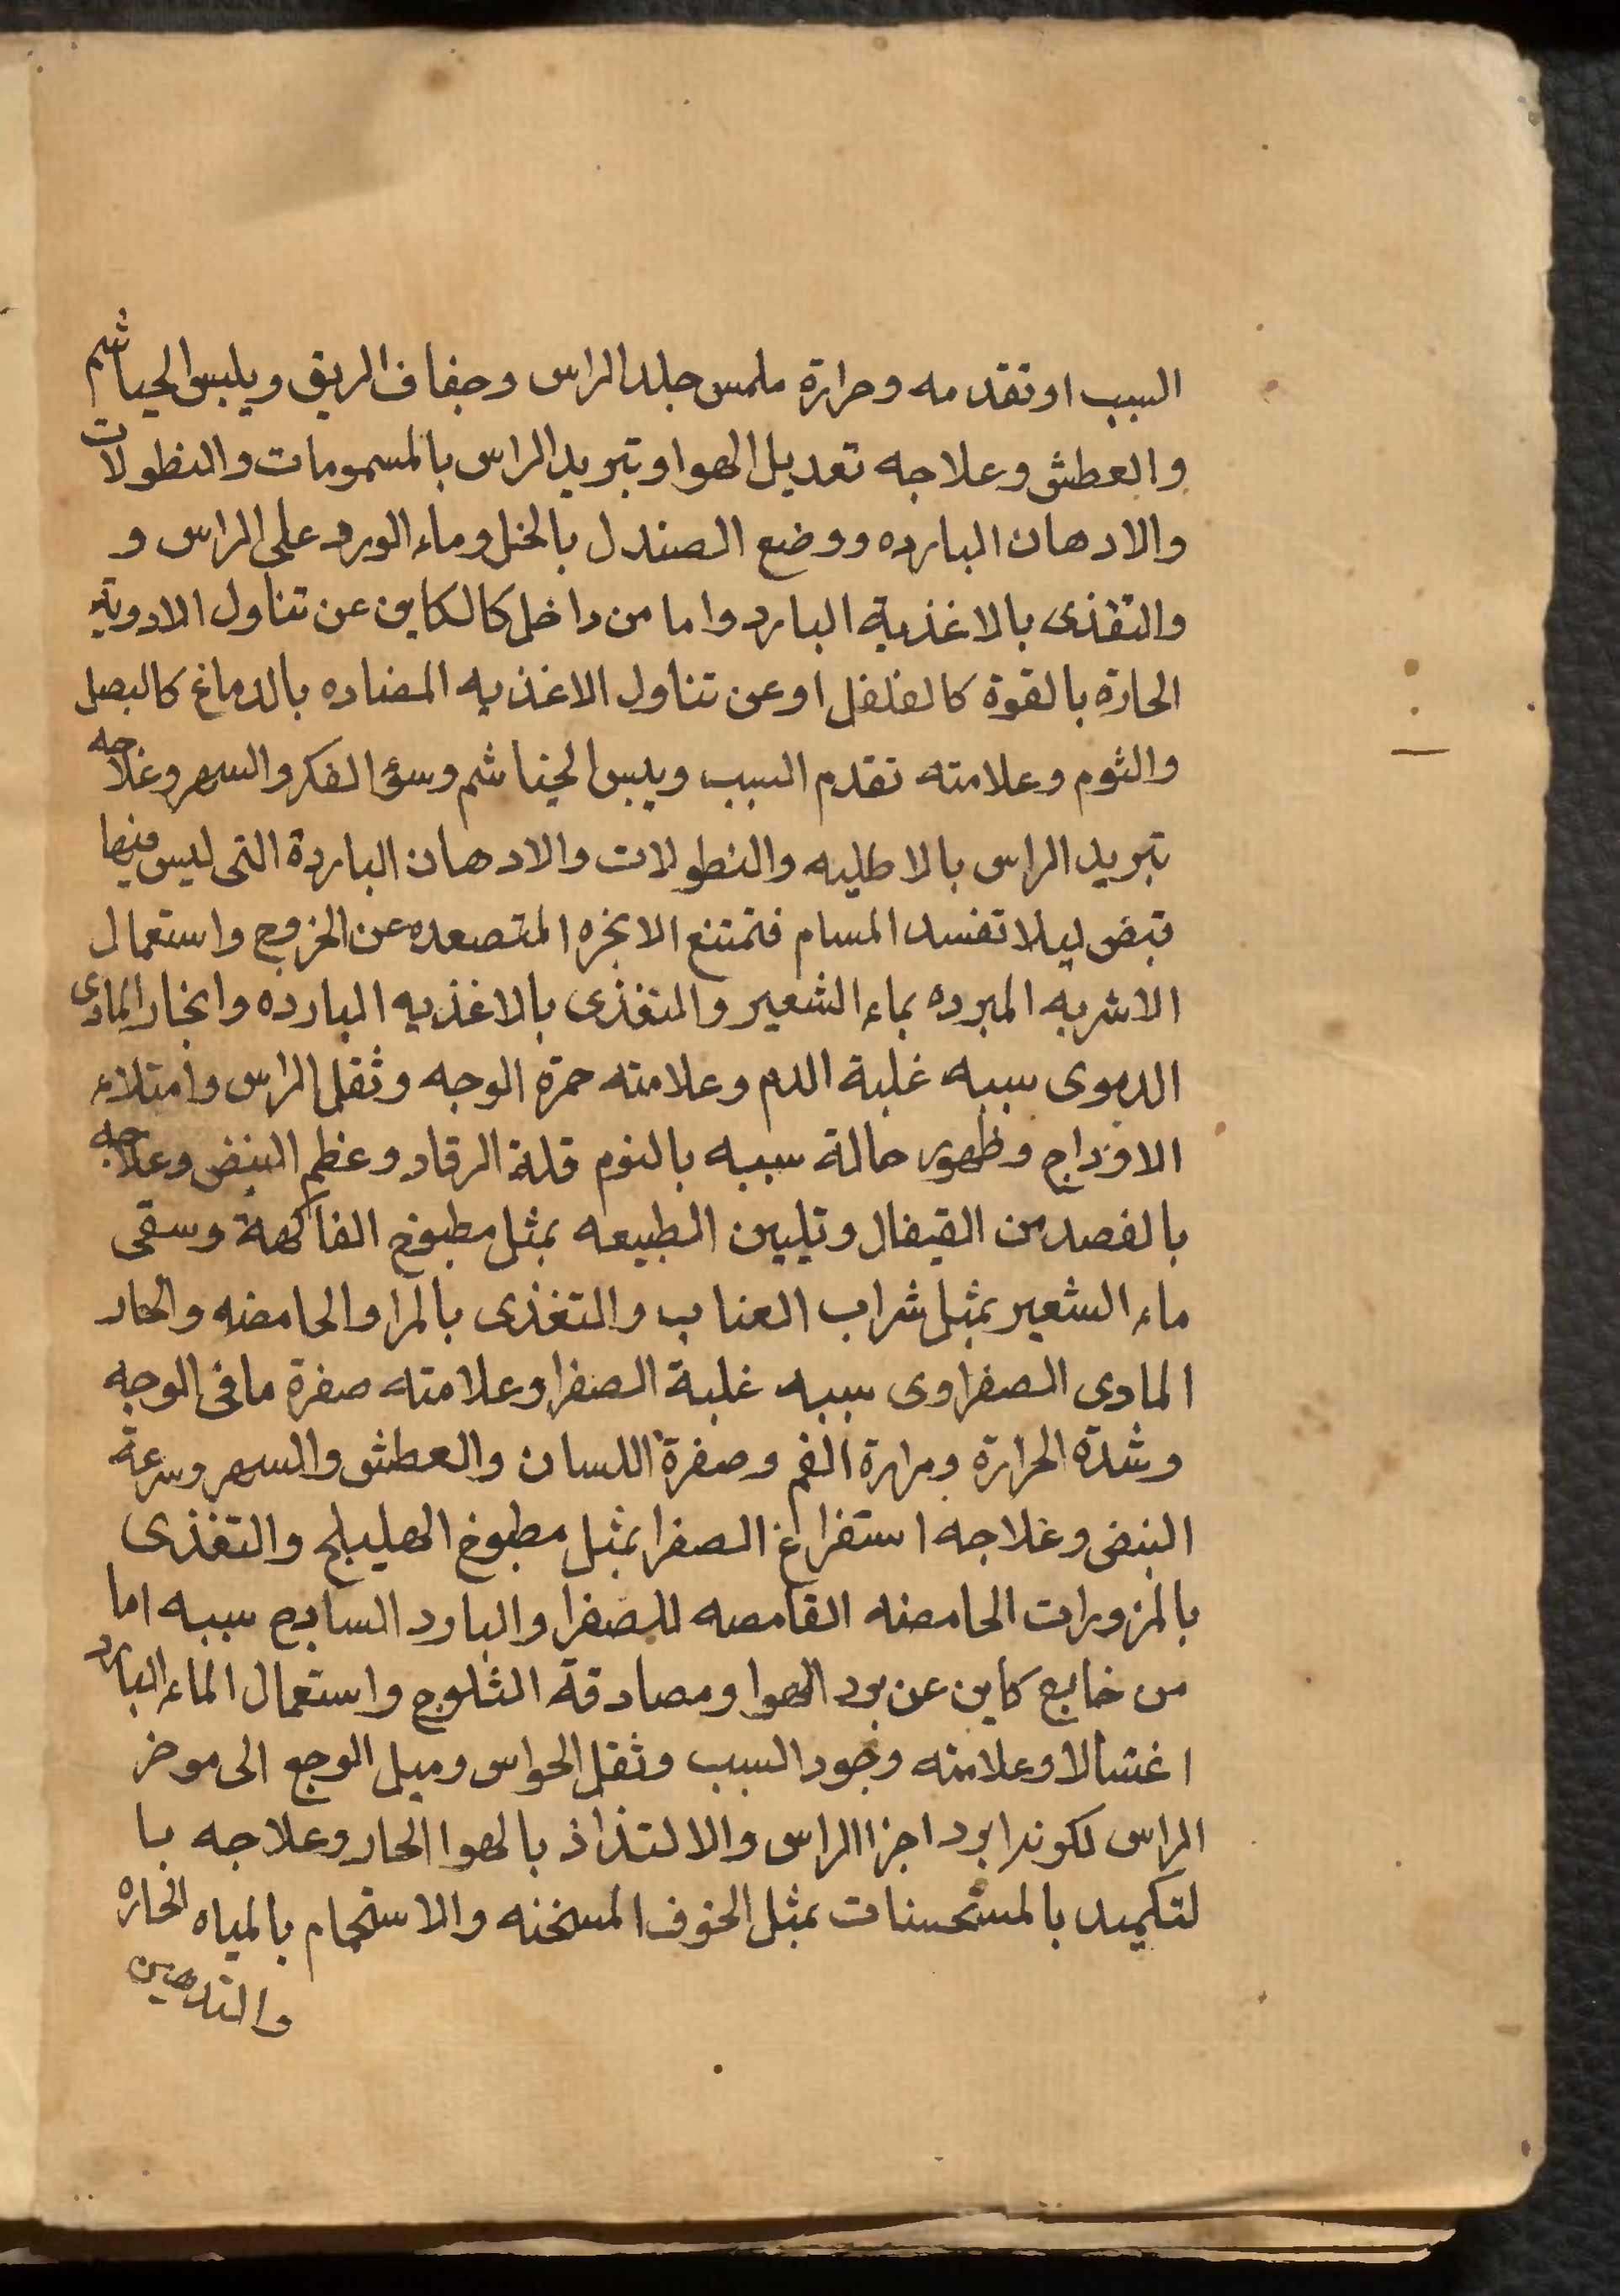 السبب او تقدمه وحرارة ملمس جلد الراس وجفاف الريق ويلبس الحياشم
والعطش وعلاجه تعديل الهوا وتبريد الراس بالمسمومات والنطولات
والادهان البارده ووضع الصندل بالخل وماء الورد على الراس و
والتغذى بالاغذية البارد واما من داخل كالكاين عن تناول الادوية
الحارة بالقوة كالفلفل او عن تناول الاغذيه المضاده بالدماغ كالبصل
والثوم وعلامته تقدم السبب ويبس الخياشم وسؤ الفكر والسهر وعلاجه
تبريد الراس بالاطليه والنطولات والادهان الباردة التى ليس فيها
قبض ليلا تفسد المسام فتمتنع الابخره المتصعده عن الخروج واستعمال
الاشربه المبرده بماء الشعير والتغذى بالاغذيه البارده وانحار المادى
الدموى سببه غلبة الدم وعلامته حمرة الوجه وثقل الراس وامتلاء
الاوداج وظهور حالة سببه بالنوم قلة الرقاد وعظم النبض وعلاجه
بالفصد من القيفال وتليين الطبيعه بمثل مطبوخ الفاكهة وسقى
ماء الشعير بمثل شراب العناب والتغذى بالمرا والحامضه والحار
المادى الصفراوى سببه غلبة الصفرا وعلامته صفرة ما فى الوجه
وشدة الحرارة ومرارة الفم وصفرة اللسان والعطش والسهر وسرعة
النبض وعلاجه استفراغ الصفرا بمثل مطبوخ الهليلج والتغذى
بالمزورات الحامضه القامصه للصفرا والبارد السادج سببه اما
من خارج كاين عن برد الهوا ومصادقة الثلوج واستعمال الماء البارد
اغتسالا وعلامته وجود السبب وثقل الحواس وميل الوجع الى موخر
الراس لكونه ابرد اجزا الراس والالتذاذ بالهوا الحار وعلاجه با
لتكميد بالمستحسنات بمثل الخوف المسخنه والاستحمام بالمياه الحاره
والتدهين